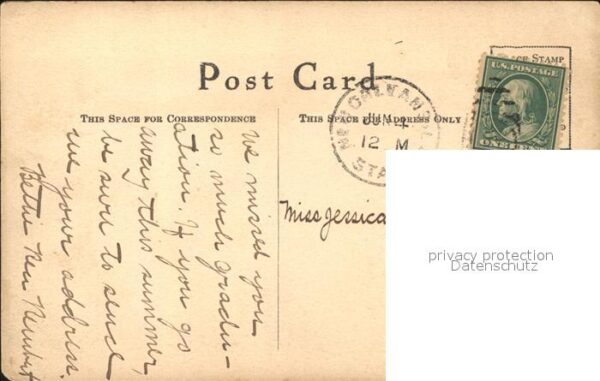 Post Card
THIS SPACE FOR CORRESPONDENCE
THIS SPACE FOR ADDRESS ONLY
STAMP
U.S. POSTAGE
ONE CENT
NEW ORLEANS
JUN 4
12 M
STA
Miss Jessica
We missed you
so much gradu-
ation. If you go
away this summer,
be sure to send
me your address.
Bettie
privacy protection
Datenschutz